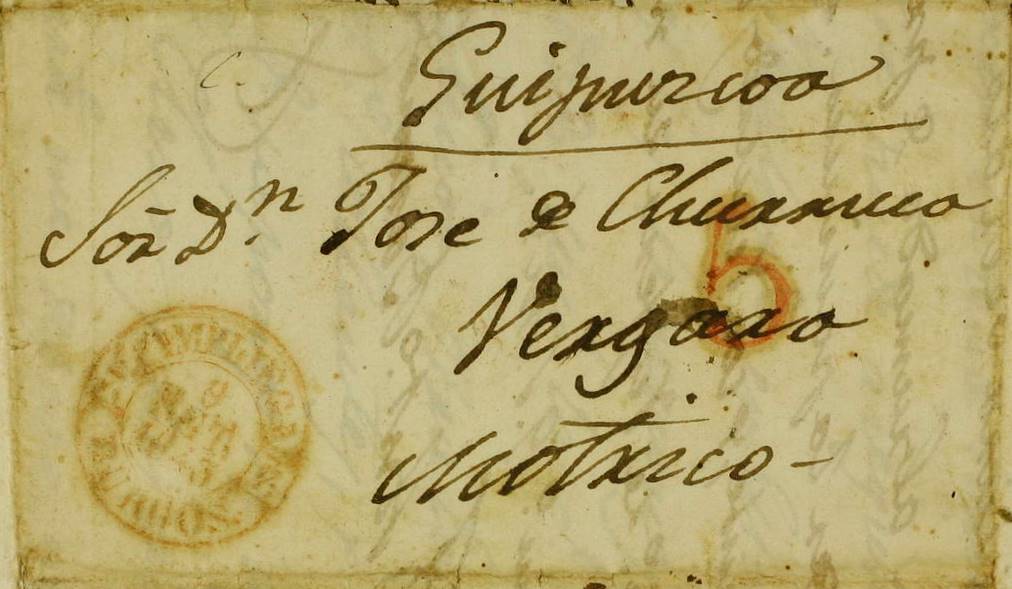 Guipuzcoa
Sōr Dⁿ. Jose de Churruca
5
Vergara
Motrico -